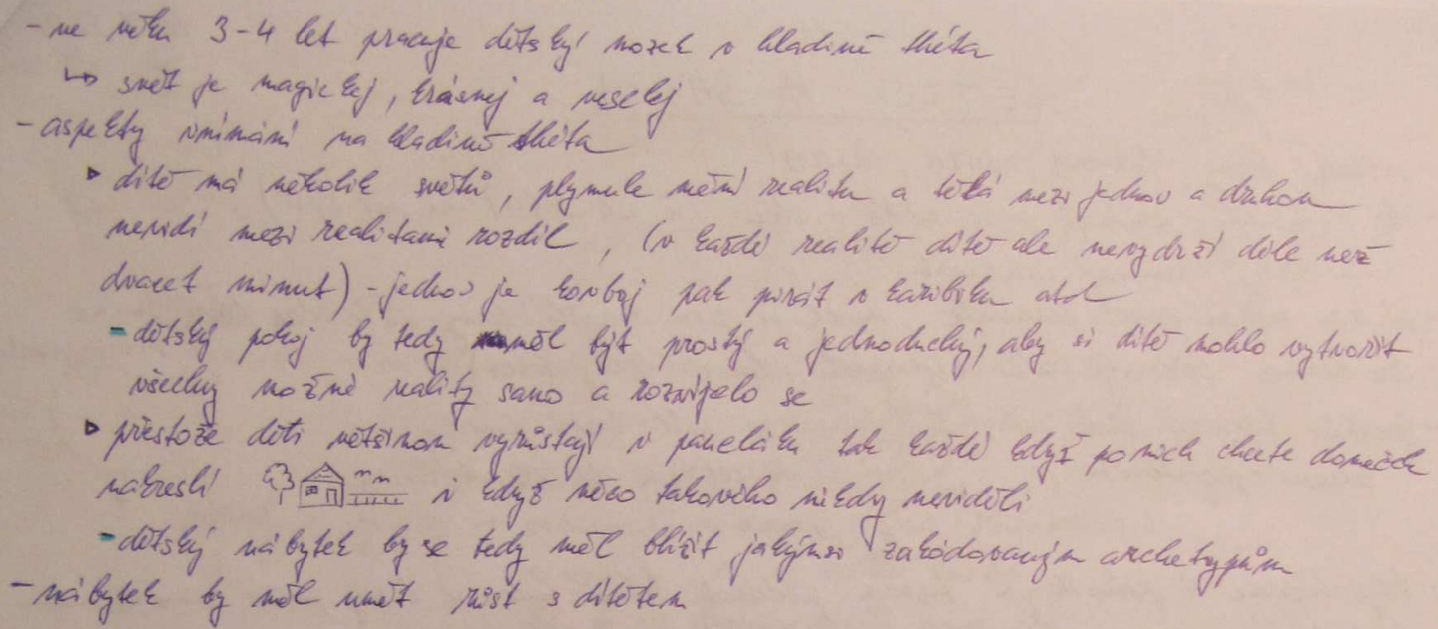 - ve věku 3-4 let pracuje dětský mozek v hladině théta
↳ svět je magickej, krásnej a veselej
- aspekty vnímání na hladině théta
▷ dítě má několik světů, plynule mění realitu a těká mezi jednou a druhou
nevidí mezi realitami rozdíl, (v každé realitě dítě ale nevydrží déle než
dvacet minut) - jednou je kovboj pak pirát v karibiku atd
- dětský pokoj by tedy měl být prostý a jednoduchý, aby si dítě mohlo vytvořit
všechny možné reality samo a rozvíjelo se
▷ přestože děti většinou vyrůstají v paneláku tak každé když po nich chcete domeček
nakreslí i když něco takového nikdy neviděli
- dětský nábytek by se tedy měl blížit jakýmsi zakódovaným archetypům
- nábytek by měl umět růst s dítětem